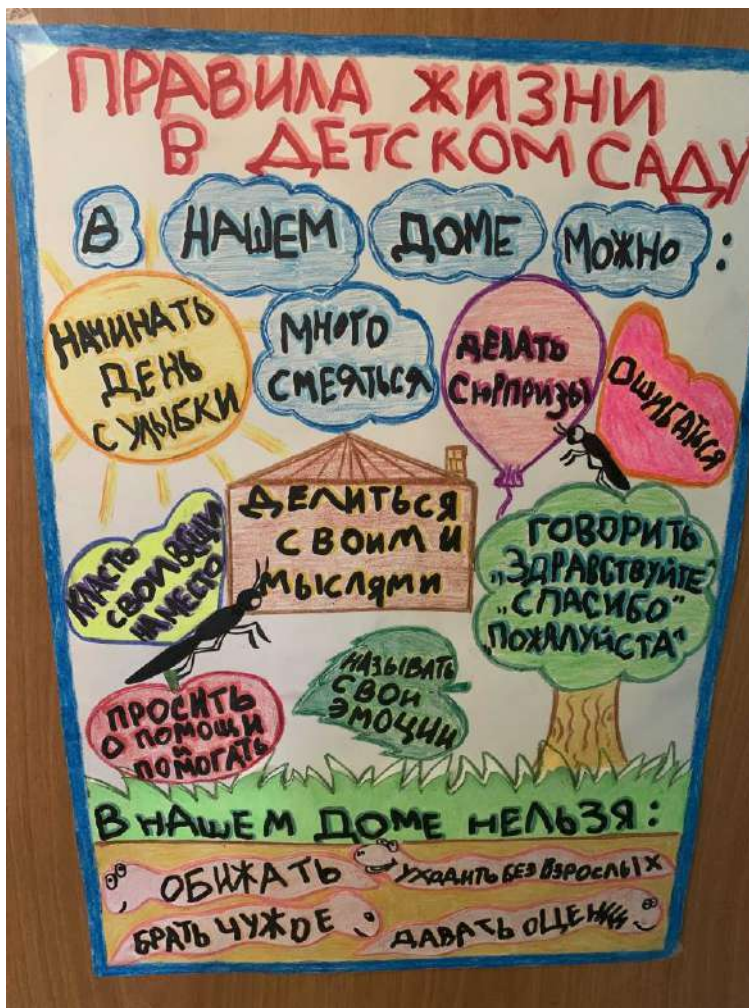 ПРАВИЛА ЖИЗНИ
В ДЕТСКОМ САДУ
В НАШЕМ ДОМЕ МОЖНО:
НАЧИНАТЬ
ДЕНЬ
С УЛЫБКИ
МНОГО
СМЕЯТЬСЯ
ДЕЛАТЬ
СЮРПРИЗЫ
ОШИБАТЬСЯ
КЛАСТЬ
СВОИ ВЕЩИ
НА МЕСТО
ДЕЛИТЬСЯ
СВОИМИ
МЫСЛЯМИ
ГОВОРИТЬ
„ЗДРАВСТВУЙТЕ"
„СПАСИБО"
„ПОЖАЛУЙСТА"
ПРОСИТЬ
О ПОМОЩИ
И
ПОМОГАТЬ
НАЗЫВАТЬ
СВОИ
ЭМОЦИИ
В НАШЕМ ДОМЕ НЕЛЬЗЯ:
ОБИЖАТЬ
УХОДИТЬ БЕЗ ВЗРОСЛЫХ
БРАТЬ ЧУЖОЕ
ДАВАТЬ